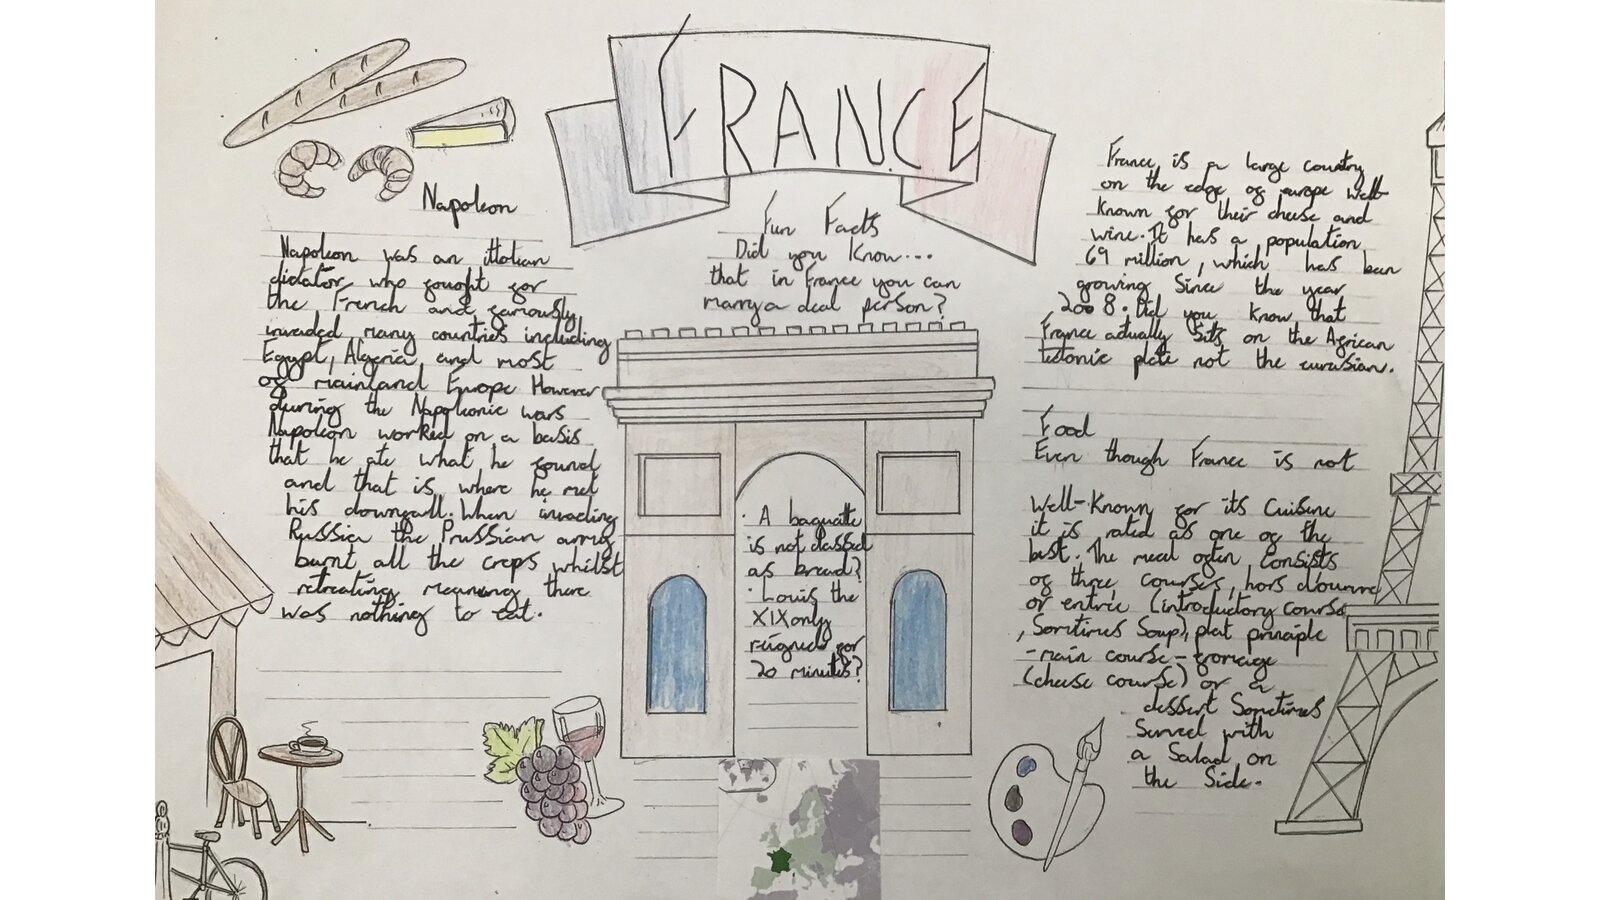 FRANCE
Napoleon
Napoleon was an ittalian
dictator who fought for
the French and famously
invaded many countries including
Egypt, Algeria, and most
of mainland Europe However
during the Napoleonic wars
Napoleon worked on a basis
that he ate what he found
and that is where he met
his downfall. When invading
Russia the Prussian army
burnt all the crops whilst
retreating meaning there
was nothing to eat.
Fun Facts
Did you Know...
that in France you can
marry a dead person?
· A baguette
is not classed
as bread?
· Louis the
XIX only
reigned for
20 minutes?
France is a large country
on the edge of europe well-
known for their cheese and
wine. It has a population
69 million, which has been
growing Since the year
2008. Did you know that
France actually Sits on the African
tectonic plate not the eurasian.
Food
Even though France is not
Well-Known for its Cuisine
it is rated as one of the
best. The meal often Consists
of three courses, hors d'ouvre
or entrée (introductory course
, Sometimes Soup), plat principle
- main course - fromage
(cheese course) or a
dessert Sometimes
Served with
a Salad on
the Side.